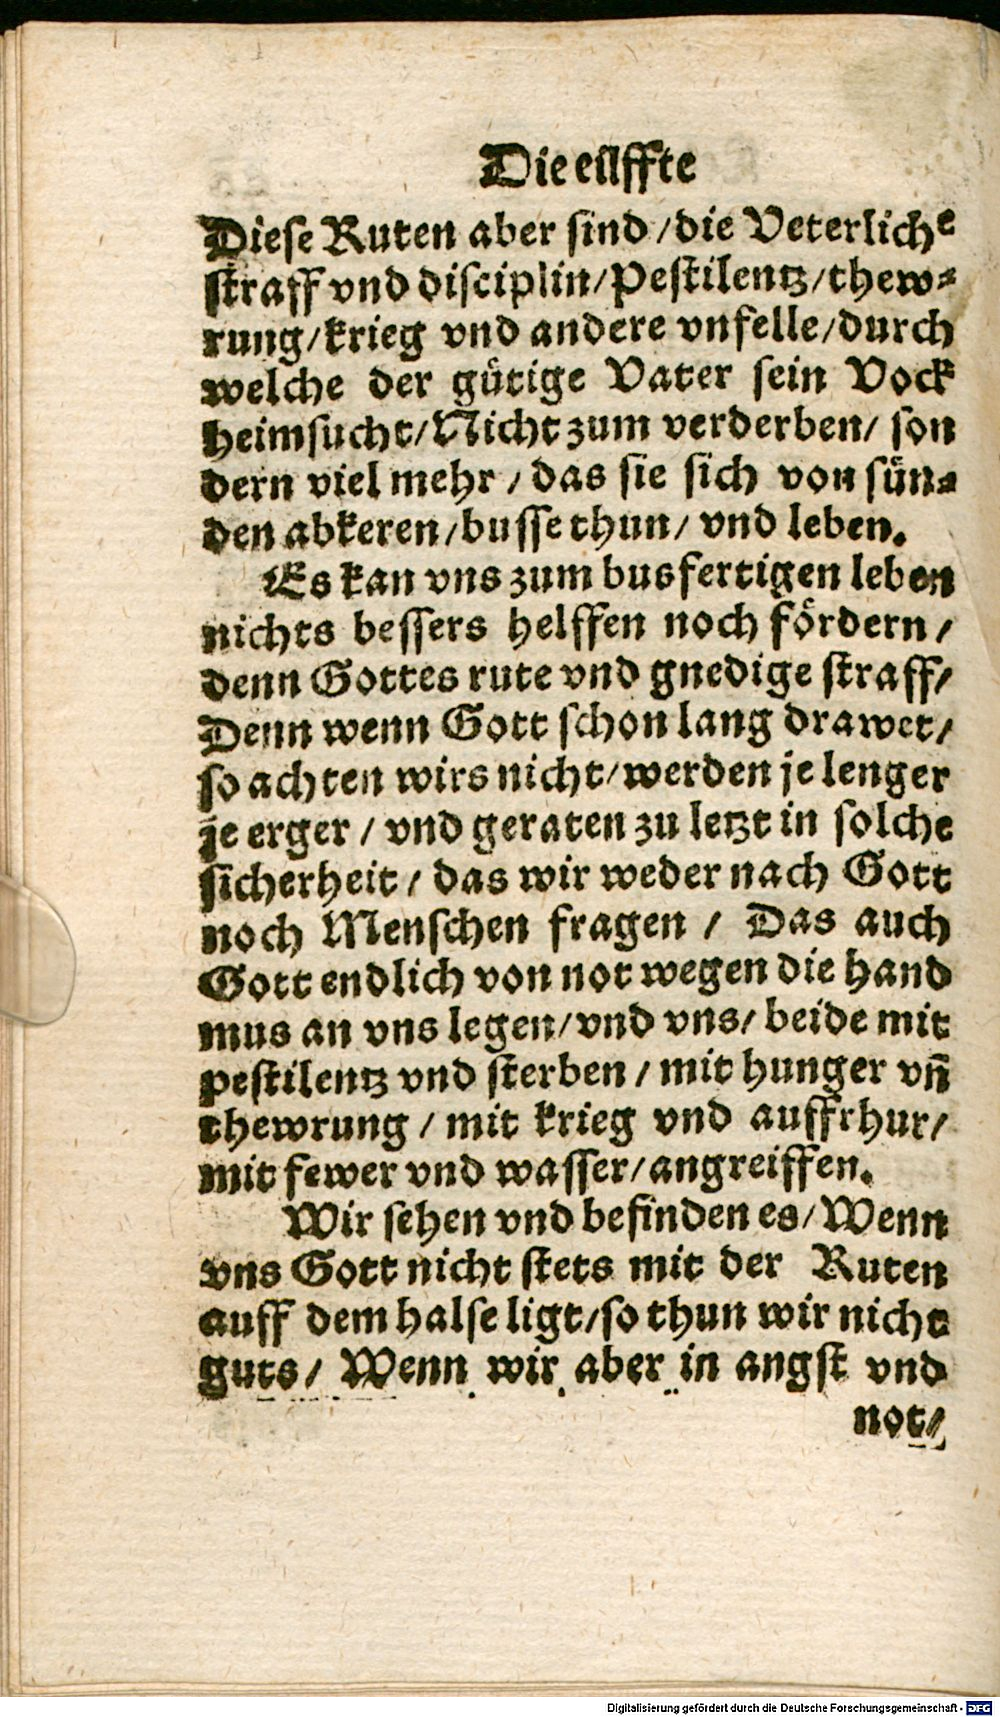 Die eilffte
Diese Ruten aber sind /die Veterliche
straff vnd disciplin/Pestilentz/thew-
rung/krieg vnd andere vnfelle/durch
welche der gütige Vater sein Vock
heimsucht/Nicht zum verderben/ son
dern viel mehr / das sie sich von sün-
den abkeren/busse thun/ vnd leben.
Es kan vns zum busfertigen leben
nichts bessers helffen noch fördern/
denn Gottes rute vnd gnedige straff/
Denn wenn Gott schon lang drawet/
so achten wirs nicht/werden je lenger
je erger / vnd geraten zu letzt in solche
sicherheit / das wir weder nach Gott
noch Menschen fragen / Das auch
Gott endlich von not wegen die hand
mus an vns legen/vnd vns/ beide mit
pestilentz vnd sterben / mit hunger vñ
thewrung / mit krieg vnd auffrhur/
mit fewer vnd wasser/angreiffen.
Wir sehen vnd befinden es/Wenn
vns Gott nicht stets mit der Ruten
auff dem halse ligt/so thun wir nicht
guts/ Wenn wir aber in angst vnd
not/
Digitalisierung gefördert durch die Deutsche Forschungsgemeinschaft - DFG